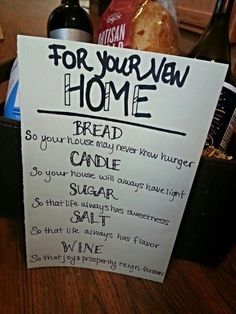 ARTISAN
FOR YOUR NEW
HOME
BREAD
So your house may never know hunger
CANDLE
So your house will always have light
SUGAR
So that life always has sweetness
SALT
So that life always has flavor
WINE
So that joy & prosperity reign forever